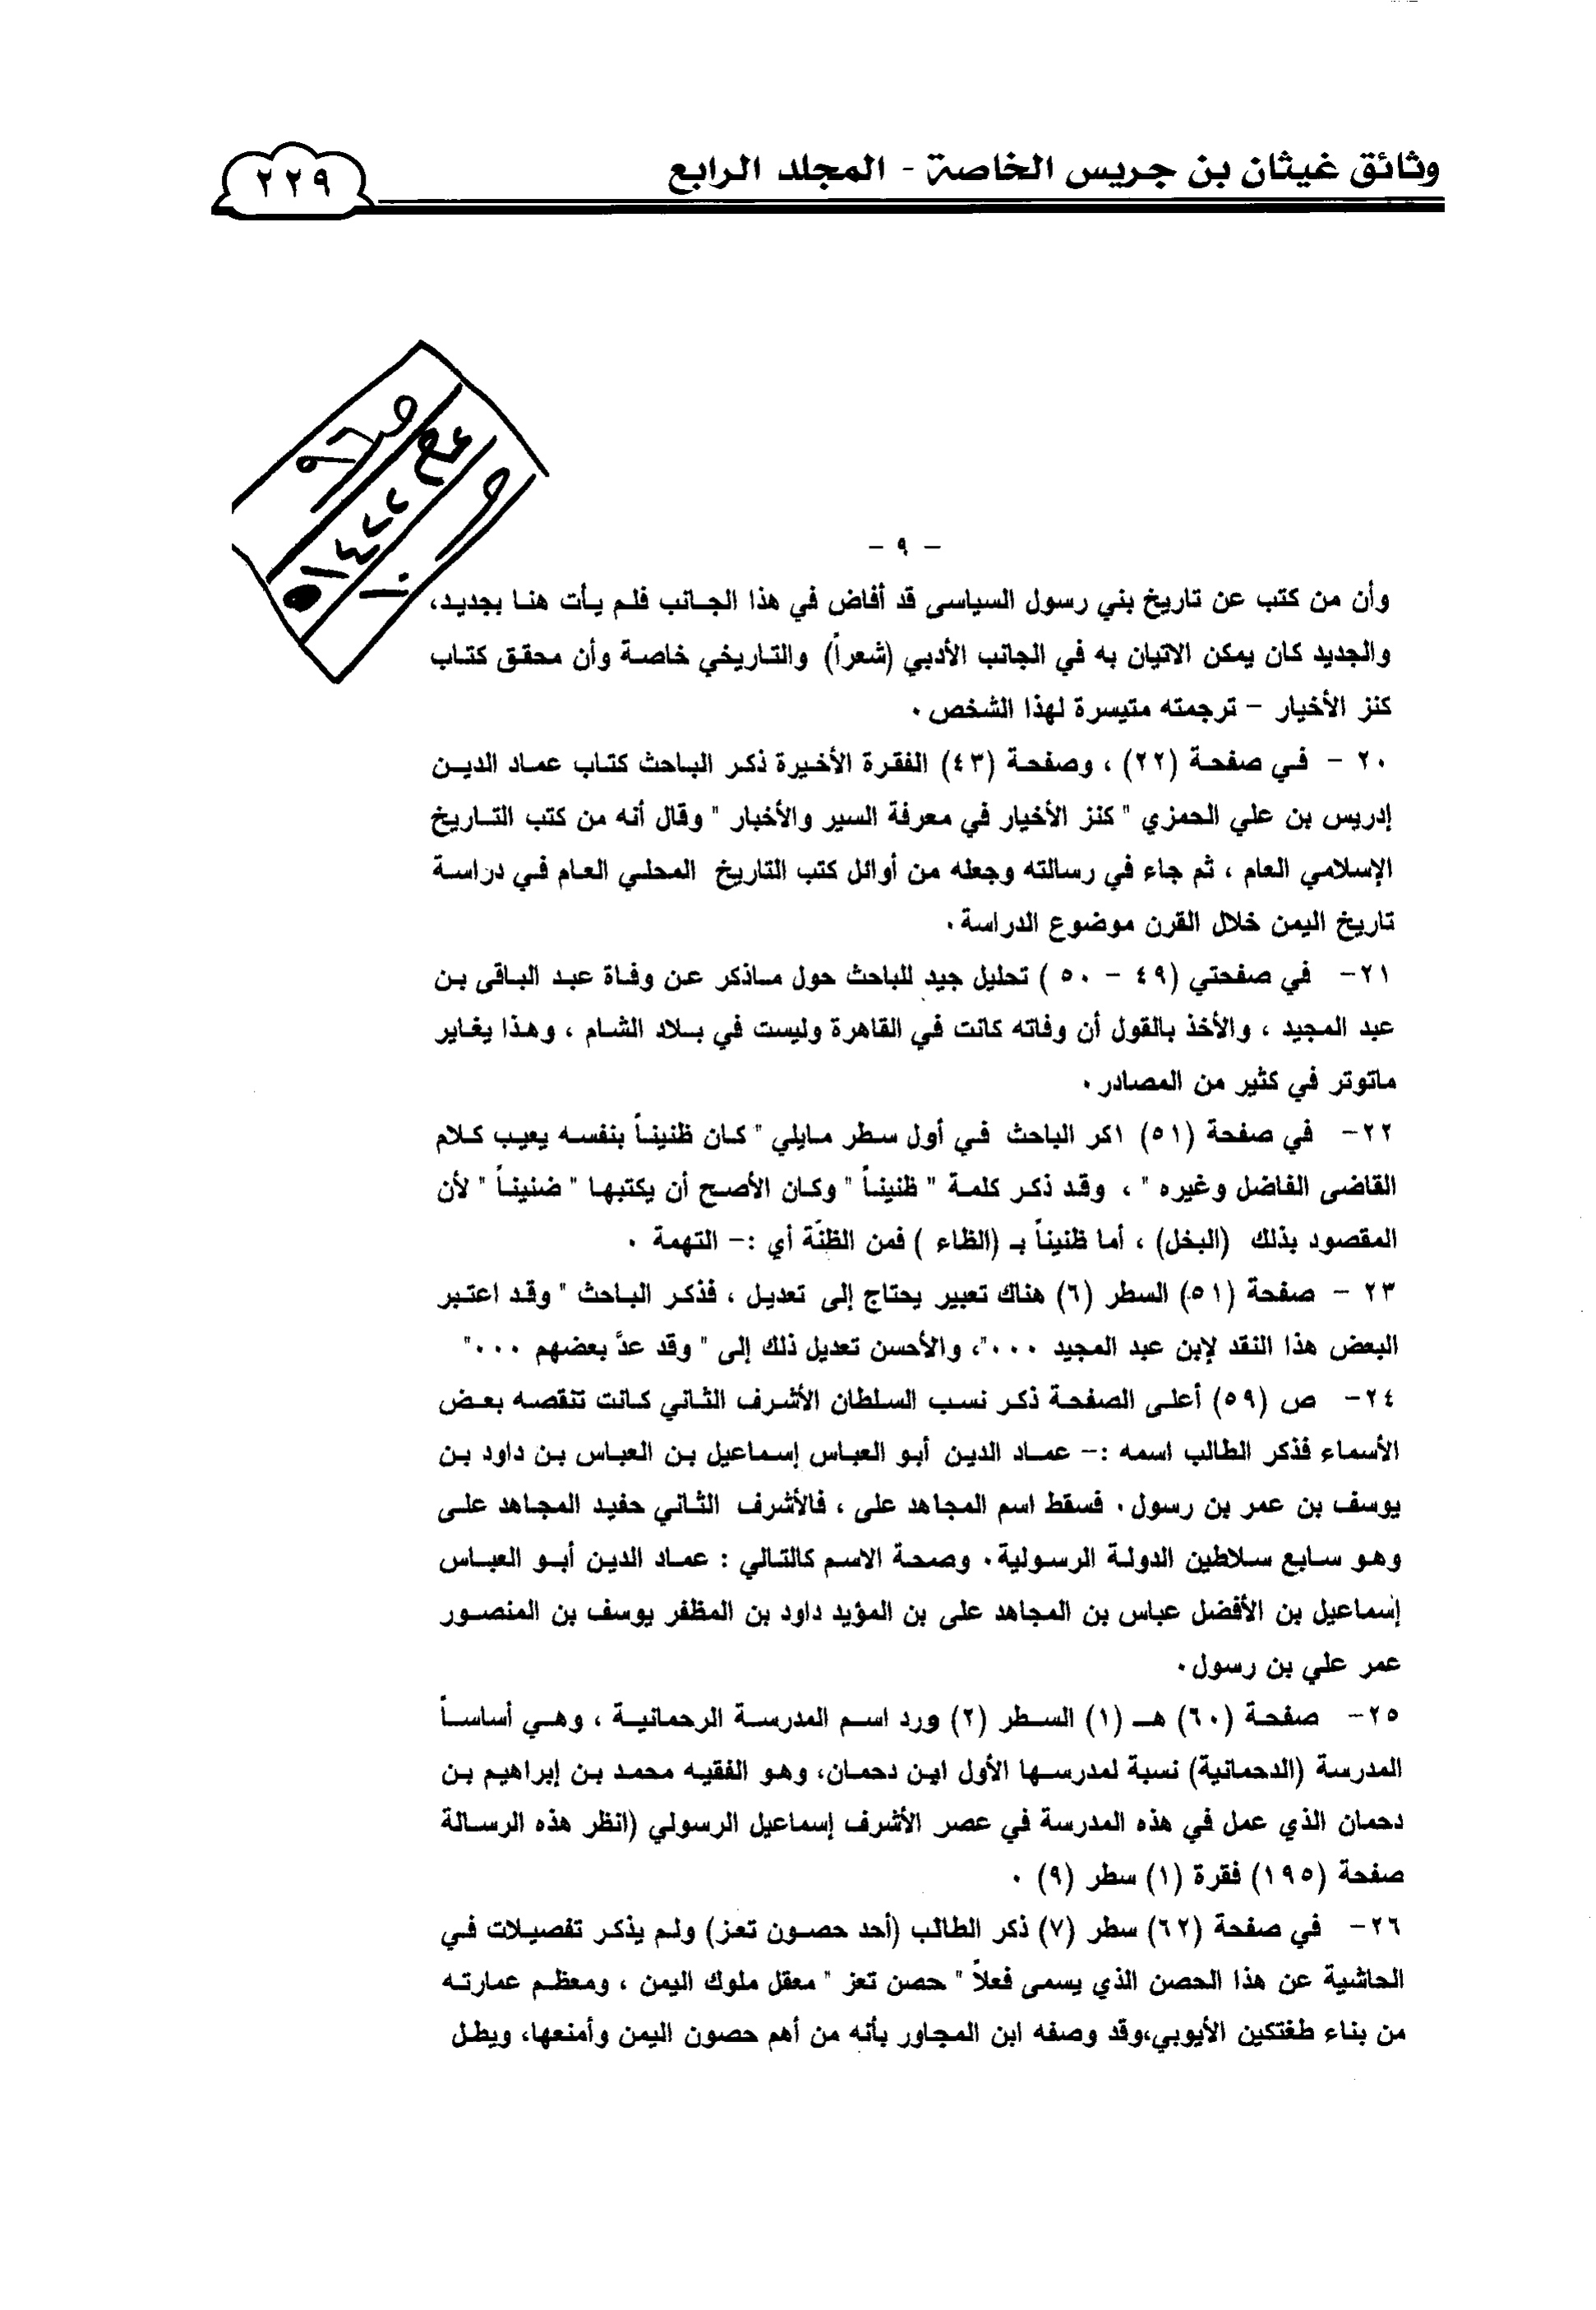 وثائق غيثان بن جريس الخاصة - المجلد الرابع
٢٢٩
ص
١٤٢٢هـ
- ٩ -
وأن من كتب عن تاريخ بني رسول السياسى قد أفاض في هذا الجانب فلم يأت هنا بجديد،
والجديد كان يمكن الاتيان به في الجانب الأدبي (شعراً) والتاريخي خاصة وأن محقق كتاب
كنز الأخيار - ترجمته متيسرة لهذا الشخص .
٢٠ - في صفحة (٢٢) ، وصفحة (٤٣) الفقرة الأخيرة ذكر الباحث كتاب عماد الدين
إدريس بن علي الحمزي " كنز الأخيار في معرفة السير والأخبار " وقال أنه من كتب التاريخ
الإسلامي العام ، ثم جاء في رسالته وجعله من أوائل كتب التاريخ المحلي العام في دراسة
تاريخ اليمن خلال القرن موضوع الدراسة .
٢١- في صفحتي (٤٩ - ٥٠ ) تحليل جيد للباحث حول ماذكر عن وفاة عبد الباقى بن
عبد المجيد ، والأخذ بالقول أن وفاته كانت في القاهرة وليست في بلاد الشام ، وهذا يغاير
ماتوتر في كثير من المصادر .
٢٢- في صفحة (٥١) اكر الباحث في أول سطر مايلي " كان ظنيناً بنفسه يعيب كلام
القاضى الفاضل وغيره " ، وقد ذكر كلمة " ظنيناً " وكان الأصح أن يكتبها " ضنيناً " لأن
المقصود بذلك (البخل) ، أما ظنيناً بـ (الظاء ) فمن الظنّة أي :- التهمة .
٢٣ - صفحة (٥١) السطر (٦) هناك تعبير يحتاج إلى تعديل ، فذكر الباحث " وقد اعتبر
البعض هذا النقد لإبن عبد المجيد ..."، والأحسن تعديل ذلك إلى " وقد عدَّ بعضهم ..."
٢٤- ص (٥٩) أعلى الصفحة ذكر نسب السلطان الأشرف الثاني كانت تنقصه بعض
الأسماء فذكر الطالب اسمه :- عماد الدين أبو العباس إسماعيل بن العباس بن داود بن
يوسف بن عمر بن رسول . فسقط اسم المجاهد على ، فالأشرف الثاني حفيد المجاهد على
وهو سابع سلاطين الدولة الرسولية . وصحة الاسم كالتالي : عماد الدين أبو العباس
إسماعيل بن الأفضل عباس بن المجاهد على بن المؤيد داود بن المظفر يوسف بن المنصور
عمر علي بن رسول .
٢٥- صفحة (٦٠) هـ (١) السطر (٢) ورد اسم المدرسة الرحمانية ، وهي أساساً
المدرسة (الدحمانية) نسبة لمدرسها الأول ابن دحمان، وهو الفقيه محمد بن إبراهيم بن
دحمان الذي عمل في هذه المدرسة في عصر الأشرف إسماعيل الرسولي (انظر هذه الرسالة
صفحة (١٩٥) فقرة (١) سطر (٩) .
٢٦- في صفحة (٦٢) سطر (٧) ذكر الطالب (أحد حصون تعز) ولم يذكر تفصيلات في
الحاشية عن هذا الحصن الذي يسمى فعلاً " حصن تعز " معقل ملوك اليمن ، ومعظم عمارته
من بناء طغتكين الأيوبي،وقد وصفه ابن المجاور بأنه من أهم حصون اليمن وأمنعها، ويطل